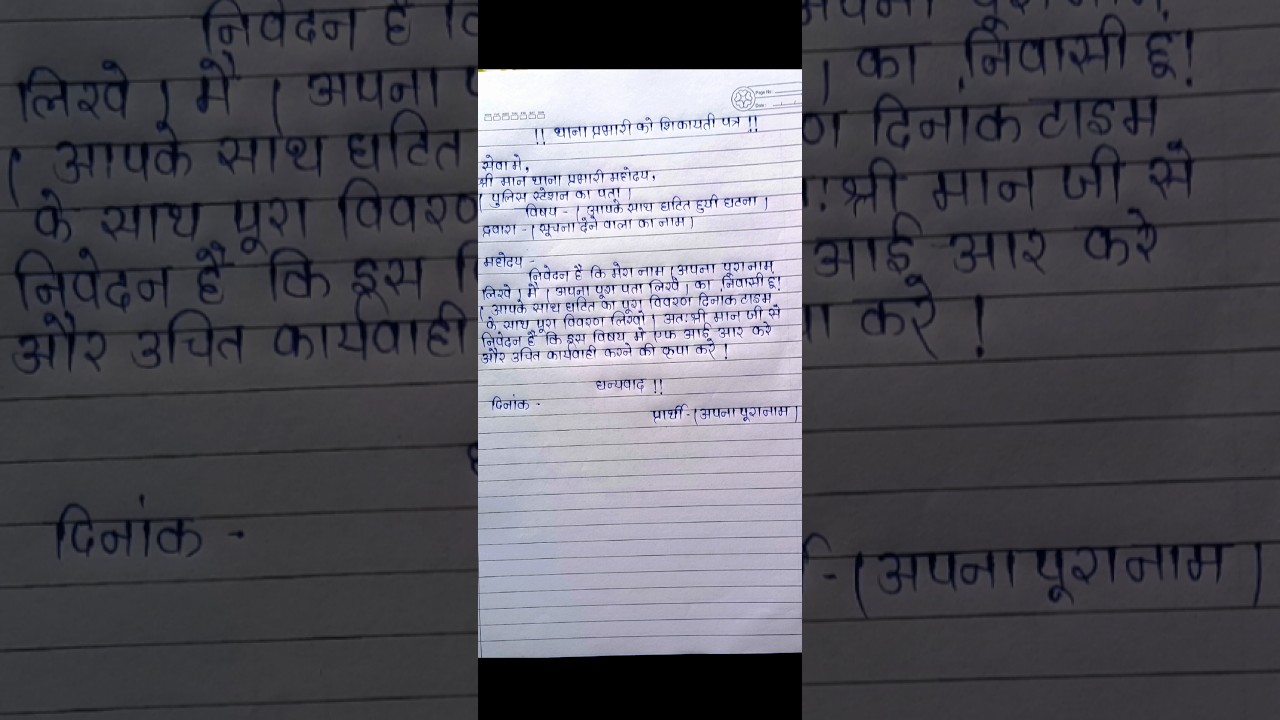 Page No.:
Date:
!! थाना प्रभारी को शिकायती पत्र !!
सेवा मे,
श्री मान थाना प्रभारी महोदय,
( पुलिस स्टेशन का पता )
विषय - ( आपके साथ घटित हुयी घटना )
द्वारा - ( सूचना देने वाला का नाम )
महोदय -
निवेदन है कि मेरा नाम ( अपना पूरा नाम
लिखे ) मै ( अपना पूरा पता लिखे ) का निवासी हू!
( आपके साथ घटित का पूरा विवरण दिनांक टाइम
के साथ पूरा विवरण लिखो ) अतः श्री मान जी से
निवेदन है कि इस विषय मे एफ आई आर करे
और उचित कार्यवाही करने की कृपा करे !
धन्यवाद !!
दिनांक -
प्रार्थी - ( अपना पूरा नाम )